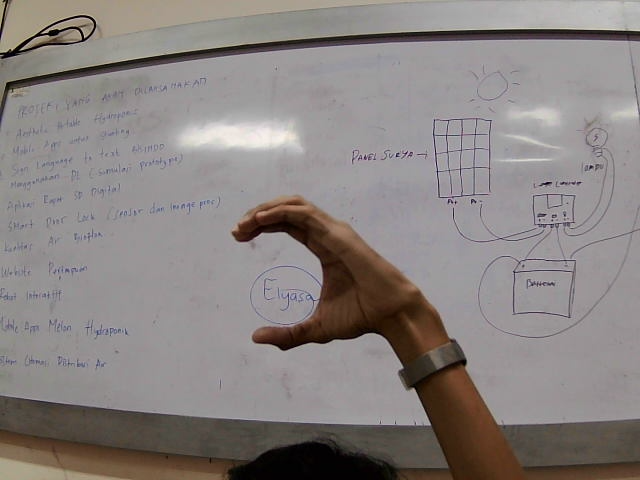 PROJEK YANG AKAN DILAKSANAKAN
Aesthetic Portable Hydroponic
Mobile Apps untuk Stunting
Sign Language to text BISINDO
Menggunakan DL (simulasi prototype)
Aplikasi Rapor SD Digital
Smart Door Lock (sensor dan image proc)
Kualitas Air Bioflok
Website Perempuan
Robot Interaktif
Mobile Apps Melon Hydroponik
Sistem Otomasi Distribusi Air
Elyasa
PANEL SURYA →
P+ P-
LAMPU
Baterai